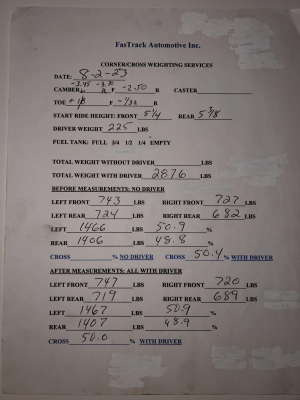 FasTrack Automotive Inc.
CORNER/CROSS WEIGHTING SERVICES
DATE: 8-2-23
CAMBER -3.45 F -2.50 R CASTER
TOE F -1/32 R
START RIDE HEIGHT: FRONT 5 1/4 REAR 5 3/8
DRIVER WEIGHT 225 LBS
FUEL TANK: FULL 3/4 1/2 1/4 EMPTY
TOTAL WEIGHT WITHOUT DRIVER LBS
TOTAL WEIGHT WITH DRIVER 2876 LBS
BEFORE MEASUREMENTS: NO DRIVER
LEFT FRONT 743 LBS RIGHT FRONT 727 LBS
LEFT REAR 724 LBS RIGHT REAR 682 LBS
LEFT 1466 LBS 50.9 %
REAR 1406 LBS 48.8 %
CROSS % NO DRIVER CROSS 50.4 % WITH DRIVER
AFTER MEASUREMENTS: ALL WITH DRIVER
LEFT FRONT 747 LBS RIGHT FRONT 720 LBS
LEFT REAR 719 LBS RIGHT REAR 689 LBS
LEFT 1467 LBS 50.9 %
REAR 1407 LBS 48.9 %
CROSS 50.0 % WITH DRIVER